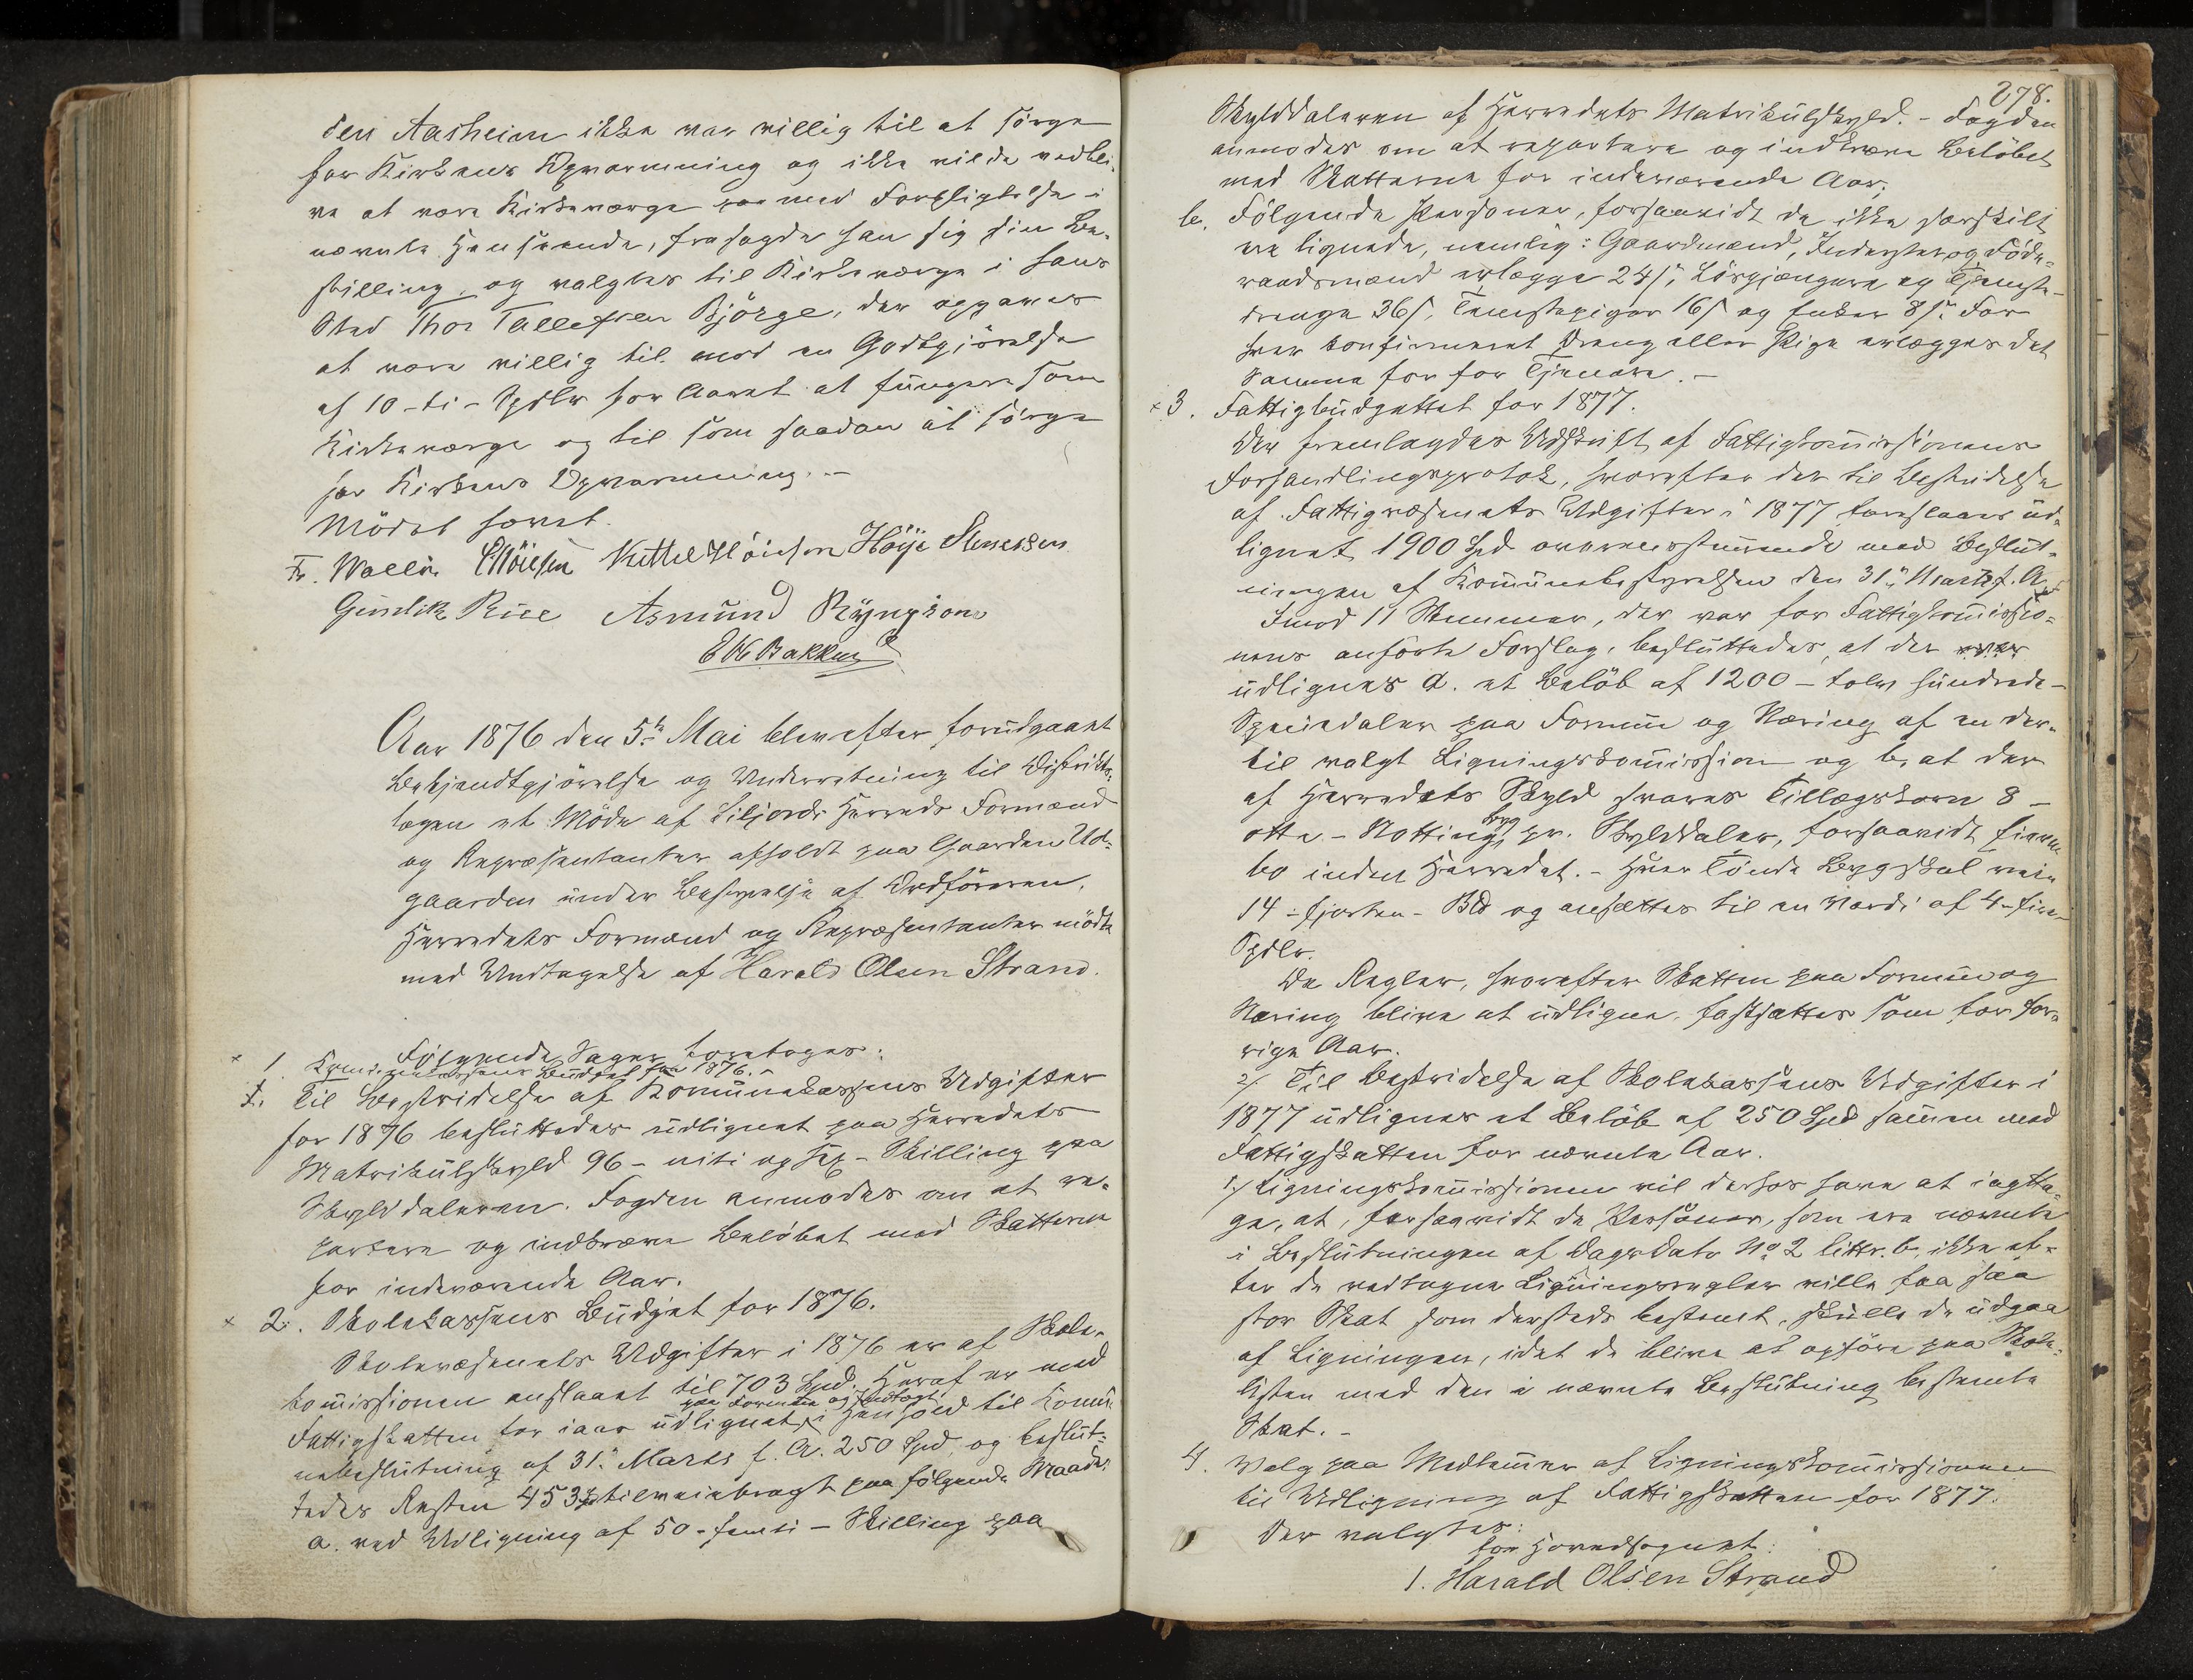 den Aasheim ikke var villig til at sörge
for Kirkens Opvarmning og ikke vilde vedbli-
ve at være Kirkeværge med Forpligtelse i
nævnte Henseende, frasagde han sig sin Be-
stilling, og valgtes til Kirkeværge i hans
Sted Thor Tallefsen Björge, der opgaves
at være villig til mod en Godtgjörelse
af 10 - ti - Spdlr for Aaret at fungere som
Kirkeværge og til som saadan at sörge
for Kirkens Opvarmning. -
Mödet hævet.
Fr. Wallin Kittel Höie Stenessen
Gunlik Rue Asmund Rÿnjson
Bakken
Aar 1876 den 5te Mai blev efter forudgaaet
Bekjendtgjörelse og Underretning til Distrikts-
lægen et Möde af Siljords Herreds Formænd
og Repræsentanter afholdt paa Gaarden Ud-
gaarden under Bestyrelse af Ordföreren.
Herredets Formænd og Repræsentanter mödte
med Undtagelse af Harald Olsen Strand.
Fölgende Sager foretoges:
1. Kommunekassens Budget for 1876. -
Til Bestridelse af Komunekassens Udgifter
for 1876 besluttedes udlignet paa Herredets
Matrikulskyld 96 - niti og sex - Skilling paa
Skylddaleren. Fogden anmodes om at re-
partere og indkræve Belöbet med Skatterne
for indeværende Aar.
x 2. Skolekassens Budjet for 1876.
Skolevæsenets Udgifter i 1876 er af Skole-
komissionen anslaaet til 703 Spd. Heraf er med
paa Formue og Indtægt
Fattigskatten for iaar udlignet i Henhold til Komu-
nebeslutning af 31. Marts f. A. 250 Spd. og beslut-
tedes Resten 453 Spd tilveiebragt paa fölgende Maade:
a. ved Udligning af 50 - femti - Skilling paa
278.
Skylddaleren af Herredets Matrikulskyld. - Fogden
anmodes om at repartere og indkræve Belöbet
med Skatterne for indeværende Aar.
b. Fölgende Personer, forsaavidt de ikke særskilt
ere lignede, nemlig: Gaardmænd, Inderster og Föde-
raadsmænd erlægge 24 s, Lösgjængere og Tjeneste-
drenge 36 s, Tjenestepiger 16 s og Enker 8 s. For
hver konfirmeret Dreng eller Pige erlægges det
Samme som for Tjenere. -
x 3. Fattigbudgettet for 1877.
Der fremlagdes Udskrift af Fattigkomissionens
Forhandlingsprotok, hvorefter der til Bestridelse
af Fattigvæsenets Udgifter i 1877 foreslaaes ud-
lignet 1900 Spd overensstemmende med Beslut-
ningen af Komunebestyrelsen den 31te Marts f. A.
Imod 11 Stemmer, der var for Fattigkomissio-
nens anförte Forslag, besluttedes, at der
udlignes a. et Belöb af 1200 - tolv hundrede -
Speciedaler paa Formue og Næring af en der-
til valgt Ligningskomission og b. at der
af Herredets Skyld svares Tillægskorn 8 -
otte - Notting Byg pr. Skylddaler, forsaavidt Eierne
bo inden Herredet. - Hver Tönde Byg skal veie
14 - fjorten - Bd og ansættes til en Værdi af 4 - fire -
Spdlr.
De Regler, hvorefter Skatten paa Formue og
Næring blive at udligne, fastsattes som for for-
rige Aar.
2/. Til Bestridelse af Skolekassens Udgifter i
1877 udlignes et Belöb af 250 Spd sammen med
Fattigskatten for nævnte Aar.
Ligningskomissionen vil derhos have at iagtta-
ge, at, forsaavidt de Personer, som ere nævnte
i Beslutningen af Dags Dato No 2 littr. b, ikke ef-
ter de vedtagne Ligningsregler ville faa saa
stor Skat som dersteds bestemt, skulle de udgaa
af Ligningen, idet de blive at opföre paa Skole-
listen med den i nævnte Beslutning bestemte
Skat. -
4. Valg paa Medlemmer af Ligningskomissionen
til Udligning af Fattigskatten for 1877.
Der valgtes:
for Hovedsognet:
1. Harald Olsen Strand